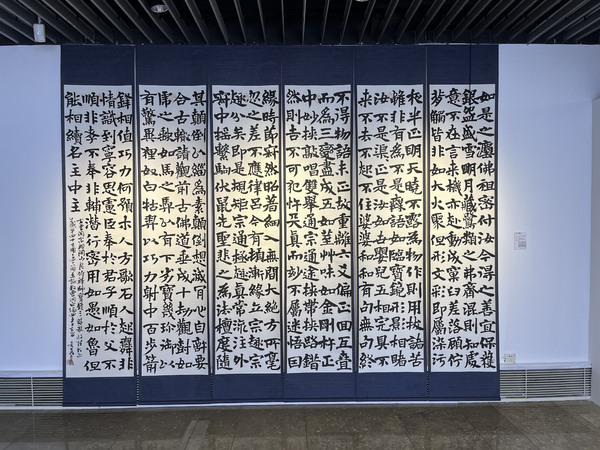 如是之灋佛祖密付汝今得之善宜保護
銀盌盛雪明月藏鷺類之弗齊混則知處
意不在言來機亦赴動成窠臼差落顧佇
背觸皆非如大火聚但形文彩即屬染污
夜半正明天曉不露為物作則用拔諸苦
雖非有為不是無語如臨寶鏡形影相睹
汝不是渠正是汝如世嬰兒五相完具不
來不去不起不住婆婆和和有句無句終
不得物語未正故重離六爻偏正回互疊
而為三變盡成五如荎草味如金剛杵正
中妙挾敲唱雙舉通宗通途挾帶挾路錯
然則吉不可犯忤天真而妙不屬迷悟因
緣時節寂然昭著細入無間大絕方所毫
忽之差不應律呂今有頓漸緣立宗趣宗
趣分矣即是規矩宗通趣極真常流注外
寂中搖繫駒伏鼠先聖悲之為法檀度隨
其顛倒以緇為素顛倒想滅肯心自許要
合古轍請觀前古佛道垂成十劫觀樹如
虎之缺如馬之馵以有下劣寶几珍御以
有驚異狸奴白牯羿以巧力射中百步箭
鋒相值巧力何預木人方歌石人起舞非
情識到寧容思慮臣奉於君子順於父不
順非孝不奉非輔潛行密用如愚如魯但
能相續名主中主